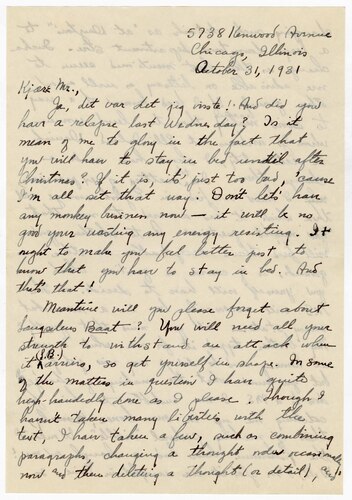 5738 Kenwood Avenue
Chicago, Illinois
October 31, 1931
Kjære Mr.,
Ja, det var det jeg viste! And did you
have a relapse last Wednesday? Is it
mean of me to glory in the fact that
you will have to stay in bed until after
Christmas? If it is, it's just too bad, 'cause
I'm all set that way. Don't let's have
any monkey business now — it will be no
good your wasting any energy resisting. It
ought to make you feel better just to
know that you have to stay in bed. And
thats that!
Meantime will you please forget about
Baat? You will need all your
strength to withstand an attack when
it (J.B.) arrives, so get yourself in shape. In some
of the matters in question I have quite
high-handedly done as I please. Though I
haven't taken many liberties with the
text, I have taken a few, such as combining
paragraphs, changing a thought order occasionally,
now and then deleting a thought (or detail), and